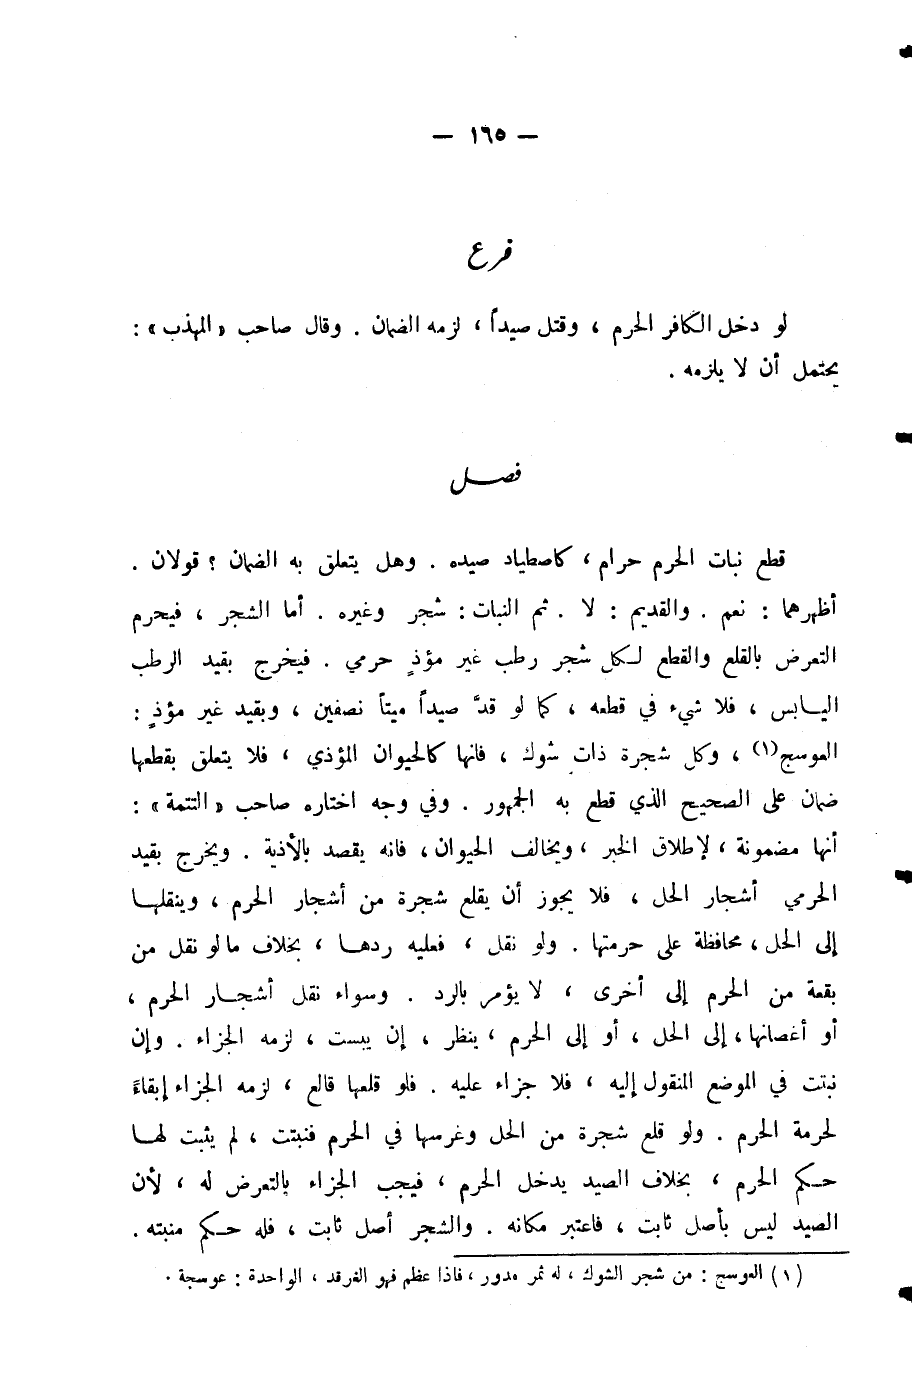 — ١٦٥ —
فرع
لو دخل الكافر الحرم ، وقتل صيداً ، لزمه الضمان . وقال صاحب « المهذب » :
يحتمل أن لا يلزمه .
فصـــل
قطع نبات الحرم حرام ، كاصطياد صيده . وهل يتعلق به الضمان ؟ قولان .
أظهرهما : نعم . والقديم : لا . ثم النبات : شجر وغيره . أما الشجر ، فيحرم
التعرض بالقلع والقطع لـكل شجر رطب غير مؤذٍ حرمي . فيخرج بقيد الرطب
اليـابس ، فلا شيء في قطعه ، كما لو قدَّ صيداً ميتاً نصفين ، وبقيد غير مؤذٍ :
العوسج(١) ، وكل شجرة ذات شوك ، فانها كالحيوان المؤذي ، فلا يتعلق بقطعها
ضمان على الصحيح الذي قطع به الجمهور . وفي وجه اختاره صاحب « التتمة » :
أنها مضمونة ، لإطلاق الخبر ، ويخالف الحيوان ، فانه يقصد بالأذية . ويخرج بقيد
الحرمي أشجار الحل ، فلا يجوز أن يقلع شجرة من أشجار الحرم ، وينقلهـا
إلى الحل ، محافظة على حرمتها . ولو نقل ، فعليه ردهـا ، بخلاف مالو نقل من
بقعة من الحرم إلى أخرى ، لا يؤمر بالرد . وسواء نقل أشجـار الحرم ،
أو أغصانها ، إلى الحل ، أو إلى الحرم ، ينظر ، إن يبست ، لزمه الجزاء . وإن
نبتت في الموضع المنقول إليه ، فلا جزاء عليه . فلو قلعها قالع ، لزمه الجزاء إبقاءً
لحرمة الحرم . ولو قلع شجرة من الحل وغرسها في الحرم فنبتت ، لم يثبت لهـا
حـكم الحرم ، بخلاف الصيد يدخل الحرم ، فيجب الجزاء بالتعرض له ، لأن
الصيد ليس بأصل ثابت ، فاعتبر مكانه . والشجر أصل ثابت ، فله حـكم منبته .
(١) العوسج : من شجر الشوك ، له ثمر مدور ، فاذا عظم فهو الغرقد ، الواحدة : عوسجة .